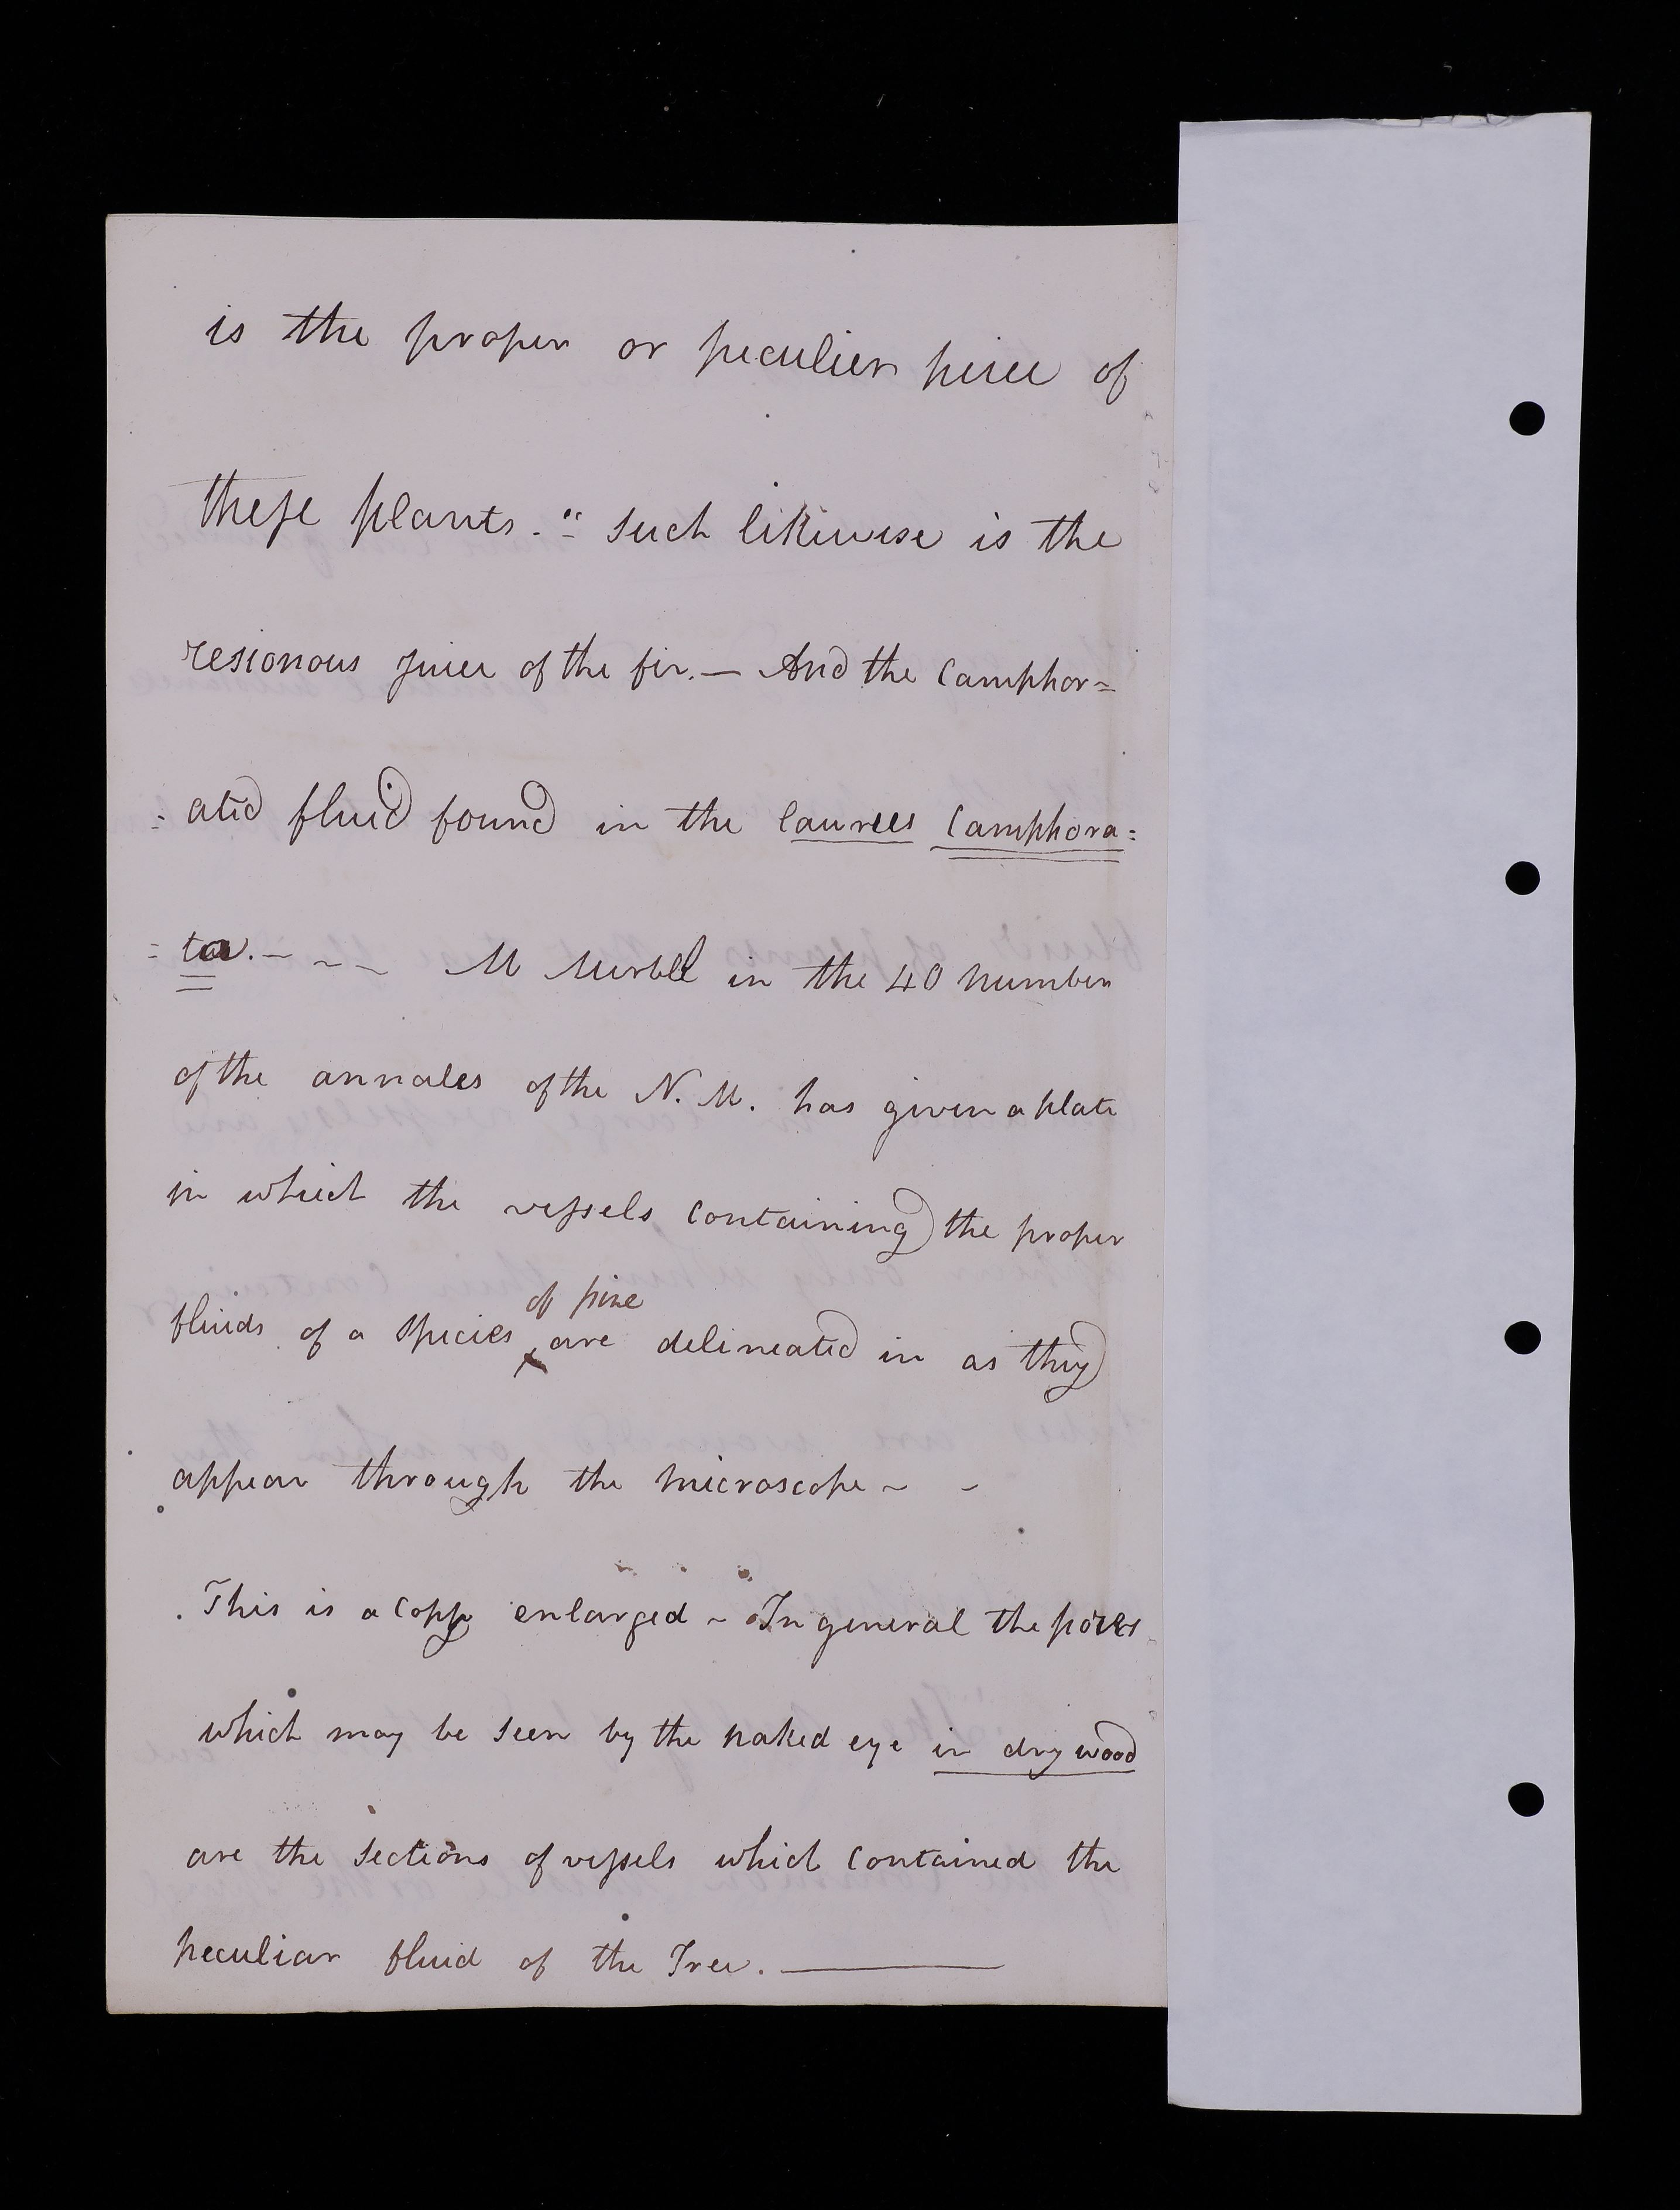 is the proper or peculier juice of
these plants. - " such likewise is the
resionous juice of the fir. — And the Camphor=
= ated fluid found in the laurees Camphora=
= ta. - - - M Mirbel in the 40 number
of the annales of the N. M. has given a plate
in which the vessels containing the proper
of pine
fluids of a species are delineated in as they
appear through the microscope - -
. This is a Copy enlarged - In general the pores
which may be seen by the naked eye in dry wood
are the sections of vessels which contained the
peculiar fluid of the Tree. —